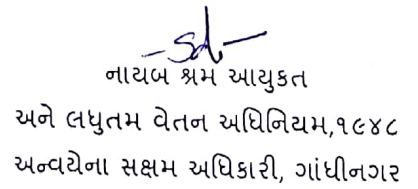 -Sd-
નાયબ શ્રમ આયુકત
અને લઘુતમ વેતન અધિનિયમ,૧૯૪૮
અન્વયેના સક્ષમ અધિકારી, ગાંધીનગર